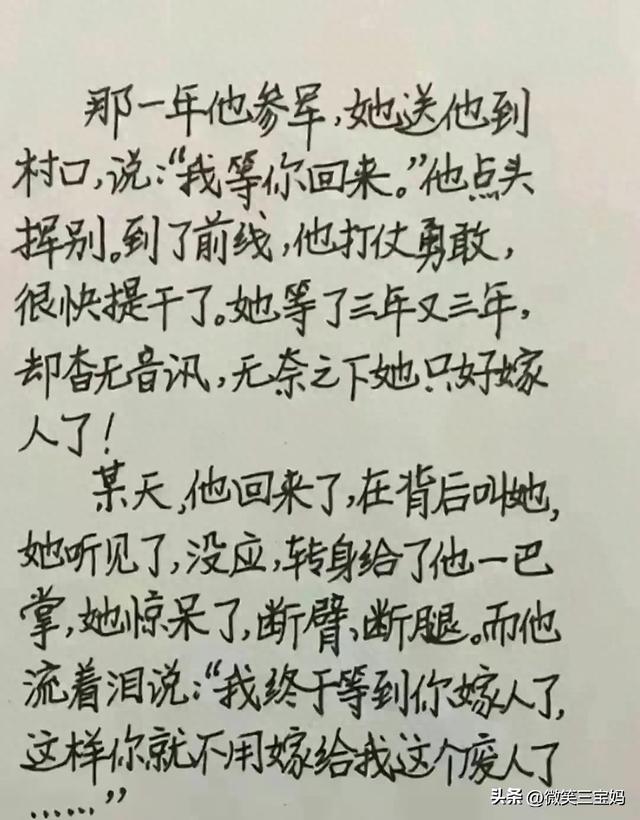 那一年他参军，她送他到
村口，说：“我等你回来。”他点头
挥别。到了前线，他打仗勇敢，
很快提干了。她等了三年又三年，
却杳无音讯，无奈之下她只好嫁
人了！
某天，他回来了，在背后叫她，
她听见了，没应，转身给了他一巴
掌，她惊呆了，断臂、断腿。而他
流着泪说：“我终于等到你嫁人了，
这样你就不用嫁给我这个废人了
……”
头条 @微笑三宝妈